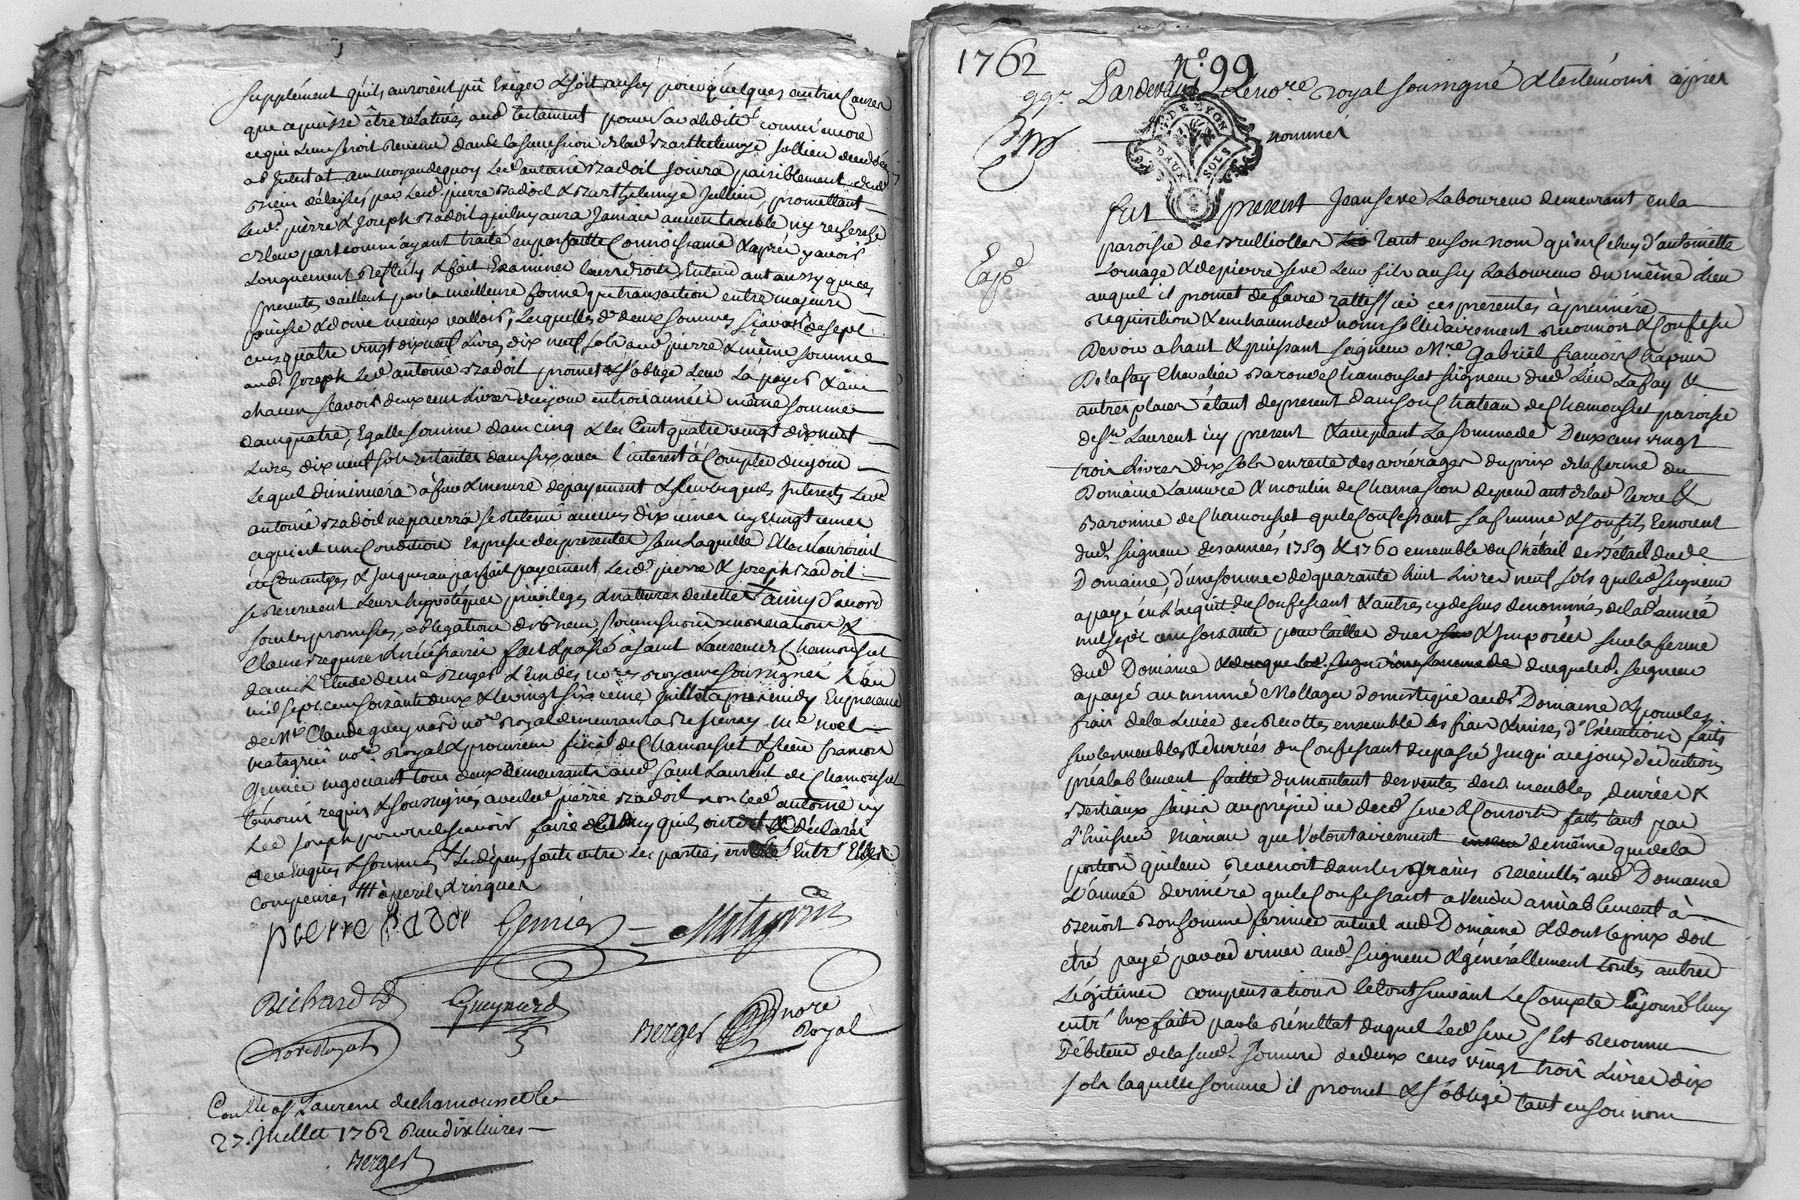 supplément qu'ils auroient pû Exiger & soit aussy pour quelques autres Causes
que ce puisse être relatives aud testament pour sa validité comme encore
ce qui leur seroit Revenu dans la succession de lad Barthelemye Jullien decedée
ab intestat au moyen de quoy Led antoine Badoil jouira paisiblement desd
biens délaissés par Led pierre Badoil & Barthelemye Jullien, promettant
Led. pierre & Joseph Badoil qu'il n'y aura Jamais aucun trouble ny recherche
de leur part comme ayant traité en parfaitte Connoissance & après y avoir
Longuement Reflechy & fait Examiner leurs droits, Entend autant aussy que ces
presentes vaillent par la meilleure forme que transaction entre majeurs
puisse & doive mieux valloir, Lesquelles d. deux sommes sçavoir de sept
cens quatre vingt dix neuf Livres dix neuf sols aud pierre & même somme
aud. Joseph Led antoine Badoil promet & s'oblige leur La payer & à un
chacun sçavoir deux cens Livres de ce jour en trois années même somme
dans quatre, Egalle somme dans cinq & les Cent quatre vingt dix neuf
Livres dix neuf sols restantes dans six avec l'interest à Compter de ce jour
Lequel diminuera à fur & mesure de payement & sur lesquels Interests Led
antoine Badoil ne pourra se Retenir aucuns dixieme ny Vingtieme
ce qui est une Condition Expresse des presentes sans laquelle Elles n'auroient
été Consenties & Jusqu'au parfait payement Led. pierre & Joseph Badoil
se Reservent Leurs hypotèques privileges & nature de dette Car ainsy d'acord
sous les promesses, obligation de biens, soumissions renonciations &
Clauses requises & necessaires fait & passé à saint Laurent de Chamousset
dans L'Etude de me Berger L'un des nores Royaux soussignés L'an
mil sept cens soixante deux & le vingt six ieme juillet apres midy En presence
de Me Claude gueynard nore Royal demeurant à Bessenay Me noël
matagrin nore Royal & procureur fiscal de Chamousset & sieur françois
Genier negotiant tous deux demeurants aud. saint Laurent de Chamousset
témoins requis & soussignés avec led pierre Badoil non led antoine ny
Led Joseph pour ne le sçavoir faire
de ce Enquis & sommés
compenses à perils & risques
pierre Badoil Genier Matagrin
Richard
nore Royal
Gueynard
Berger nore Royal
Conllé a St Laurent de chamousset le
27. Juillet 1762 Reçu dix livres
Berger
1762
N.° 99
99e
Pardevant Le nore. royal soussigné & les témoins après
nommés
G. DE LYON
DEUX SOLS
fut present Jean seve Laboureur demeurant en la
Expé
paroisse de Brullioles tant en son nom qu'en Celuy d'antoinette
Lornage & de pierre seve Leur fils aussy Laboureur du même Lieu
auquel il promet de faire rattiffier ces presentes à première
Requisition & en chacun desd noms sollidairement Reconnoit & Confesse
Devoir à haut & puissant seigneur Mre. Gabriël françois Chapuis
De la fay Chevalier Baron de Chamousset seigneur dud Lieu Lafay &
autres places étant de present dans son Chateau de Chamousset paroisse
de st Laurent icy present & acceptant La somme de Deux cens vingt
trois Livres dix sols en reste des arrérages du prix de la ferme du
Domaine Lamure & moulin de Chamasson dependant de lad terre &
Baronnie de Chamousset que le Confessant sa femme & son fils tenoient
dud. seigneur des années 1759 & 1760 ensemble du Chétail de Bétail dud
Domaine, d'une somme de quarante huit Livres neuf sols que led seigneur
a payé en L'acquit du Confessant & autres cy dessus denommés de lad année
mil sept cens soixante pour tailles dues & Imposées sur la ferme
dud Domaine de ce que led. seigneur
a payé au nommé Mollager domestique aud. Domaine & pour les
frais de la Levée des Recottes ensemble les frais & mises d'Exécutions faits
sur les meubles & denrées du Confessant du passé Jusqu'à ce jour, déduction
préalablement faitte du montant des ventes des meubles, denrées &
Bestiaux saisis au préjudice dud seve & Consorts faits tant par
L'huissier Mariau que Volontairement de même que de la
portion que leur Revenoit dans les grains Recueillis aud Domaine
L'année dernière que le Confessant a Vendu amiablement à
Benoit Bonhomme fermier actuel aud Domaine & dont le prix doit
être payé par ce dernier aud seigneur & généralement toutes autres
Légitimes compensations le tout suivant Le Compte Ce jourd'huy
entr'eux fait par le Résultat duquel Led seve s'est reconnu
Débiteur de la sud. somme de deux cens vingt trois Livres dix
sols laquelle somme il promet & s'oblige tant en son nom